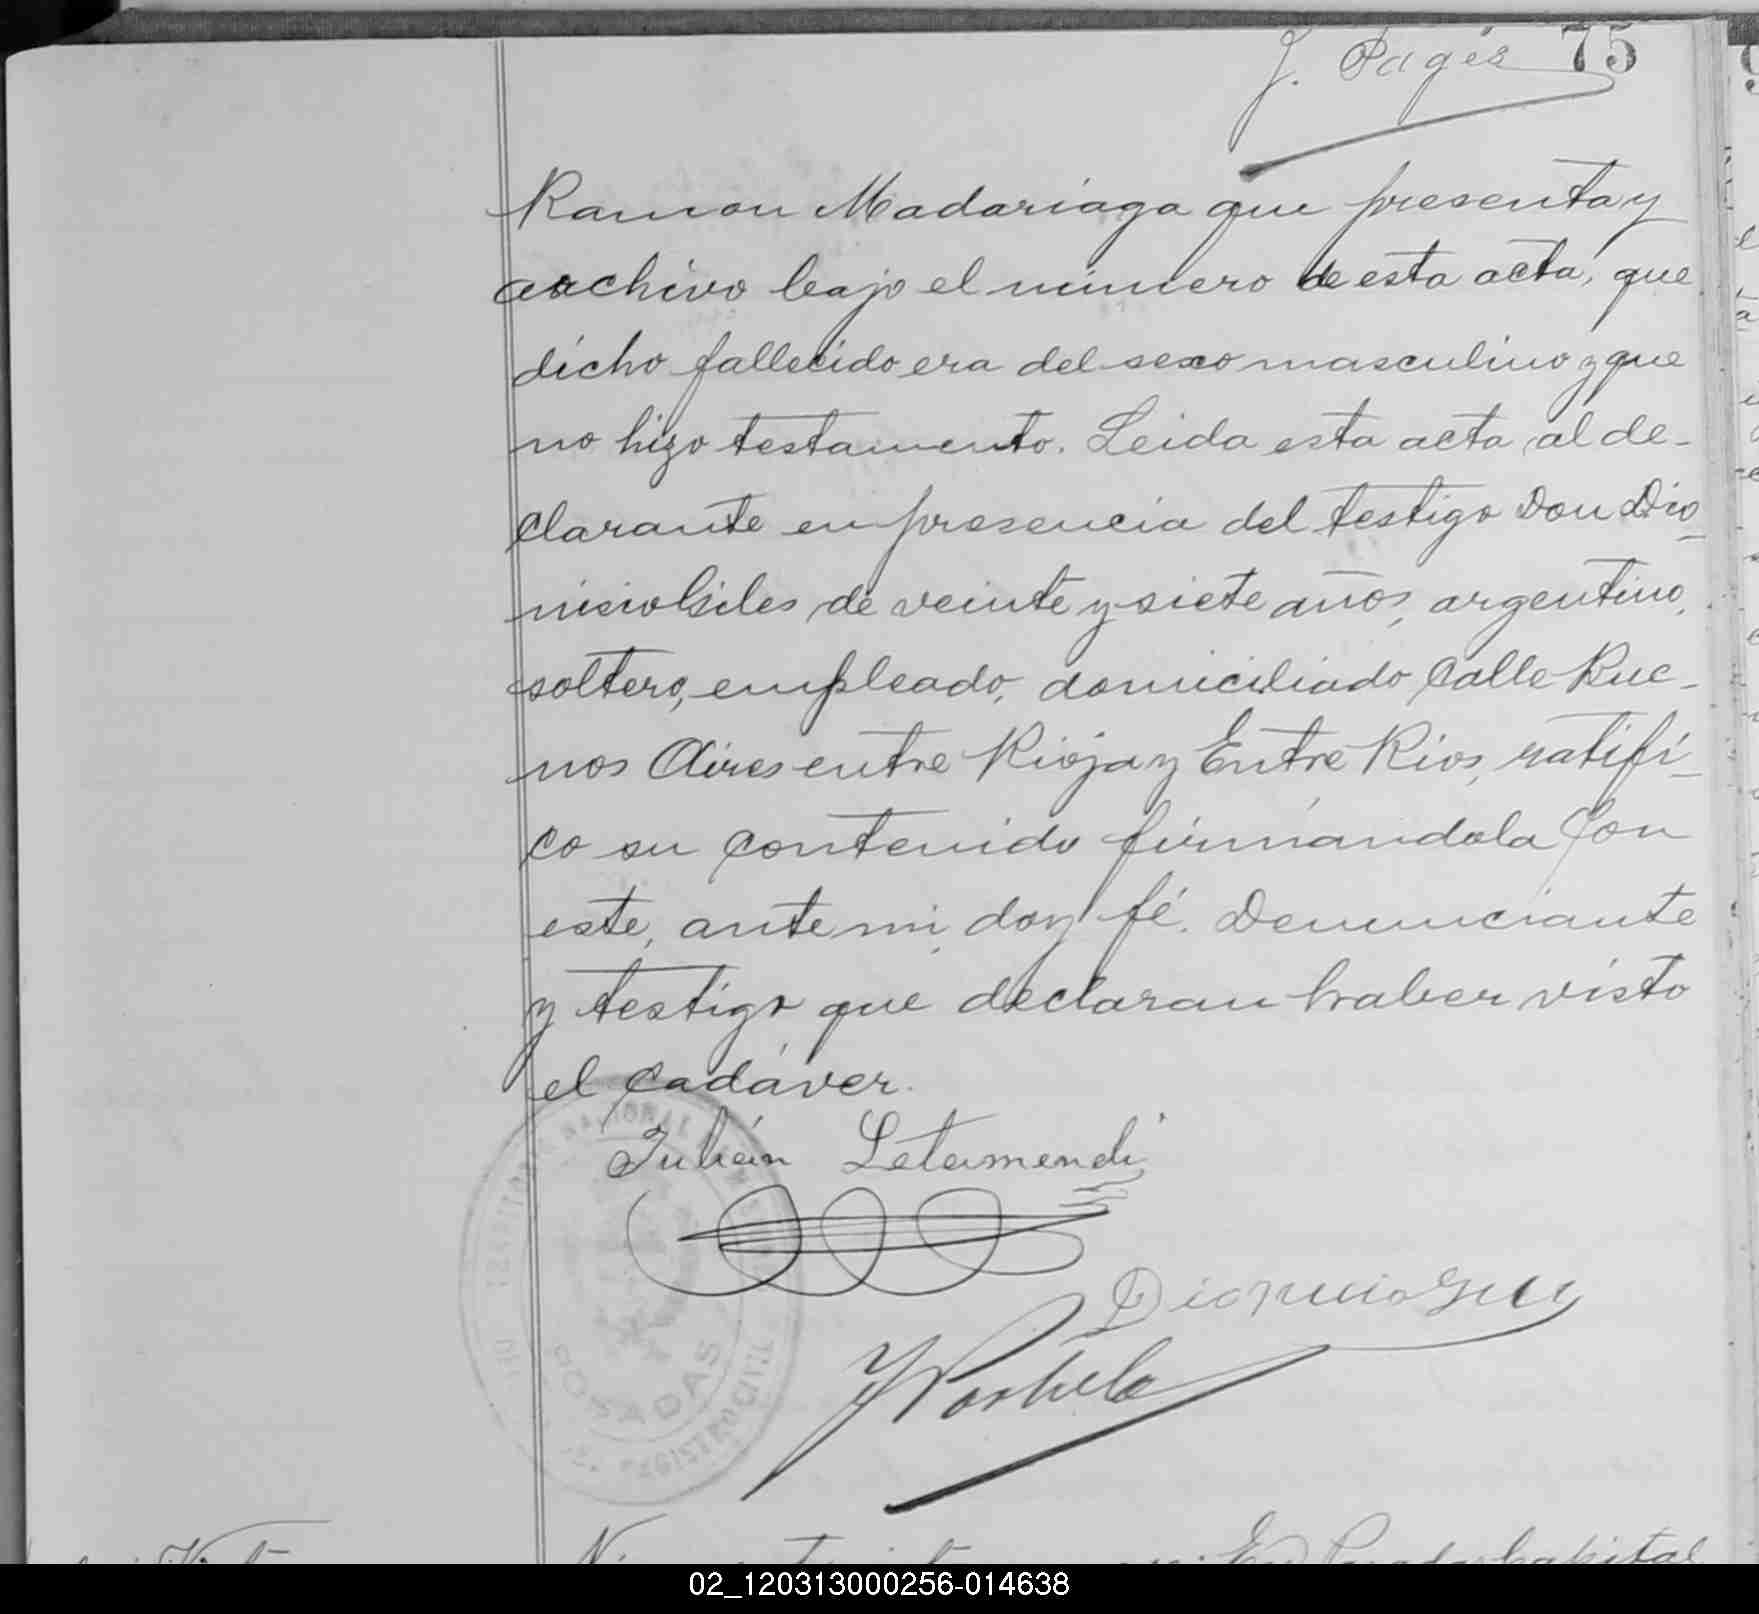 J. Pagés 75
Ramon Madariaga que presenta y
archivo bajo el número de esta acta, que
dicho fallecido era del sexo masculino y que
no hizo testamento. Leida esta acta al de-
clarante en presencia del testigo Don Dio-
nisio Giles de veinte y siete años, argentino,
soltero, empleado, domiciliado Calle Bue-
nos Aires entre Rioja y Entre Rios, ratifi-
co su contenido firmándola con
este, ante mi, doy fé. Denunciante
y testigo que declaran haber visto
el cadáver.
Julián Letamendi
Dionicio
POSADAS
REGISTRO CIVIL
02_120313000256-014638